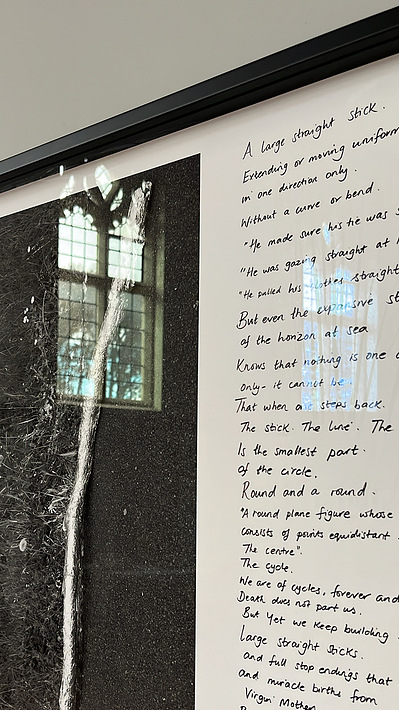 A large straight stick.
Extending or moving uniform
in one direction only.
Without a curve or bend.
"He made sure his tie was s
"He was gazing straight at h
"He pulled his clothes straight
But even the expansive st
of the horizon at sea
Knows that nothing is one d
only - it cannot be.
That when one steps back.
The stick. The line. The
Is the smallest part.
of the circle.
Round and a round.
"A round plane figure whose
consists of points equidistant
The centre".
The cycle.
We are of cycles, forever and
Death does not part us.
But yet we keep building
large straight sticks.
and full stop endings that
and miracle births from
Virgin Mother